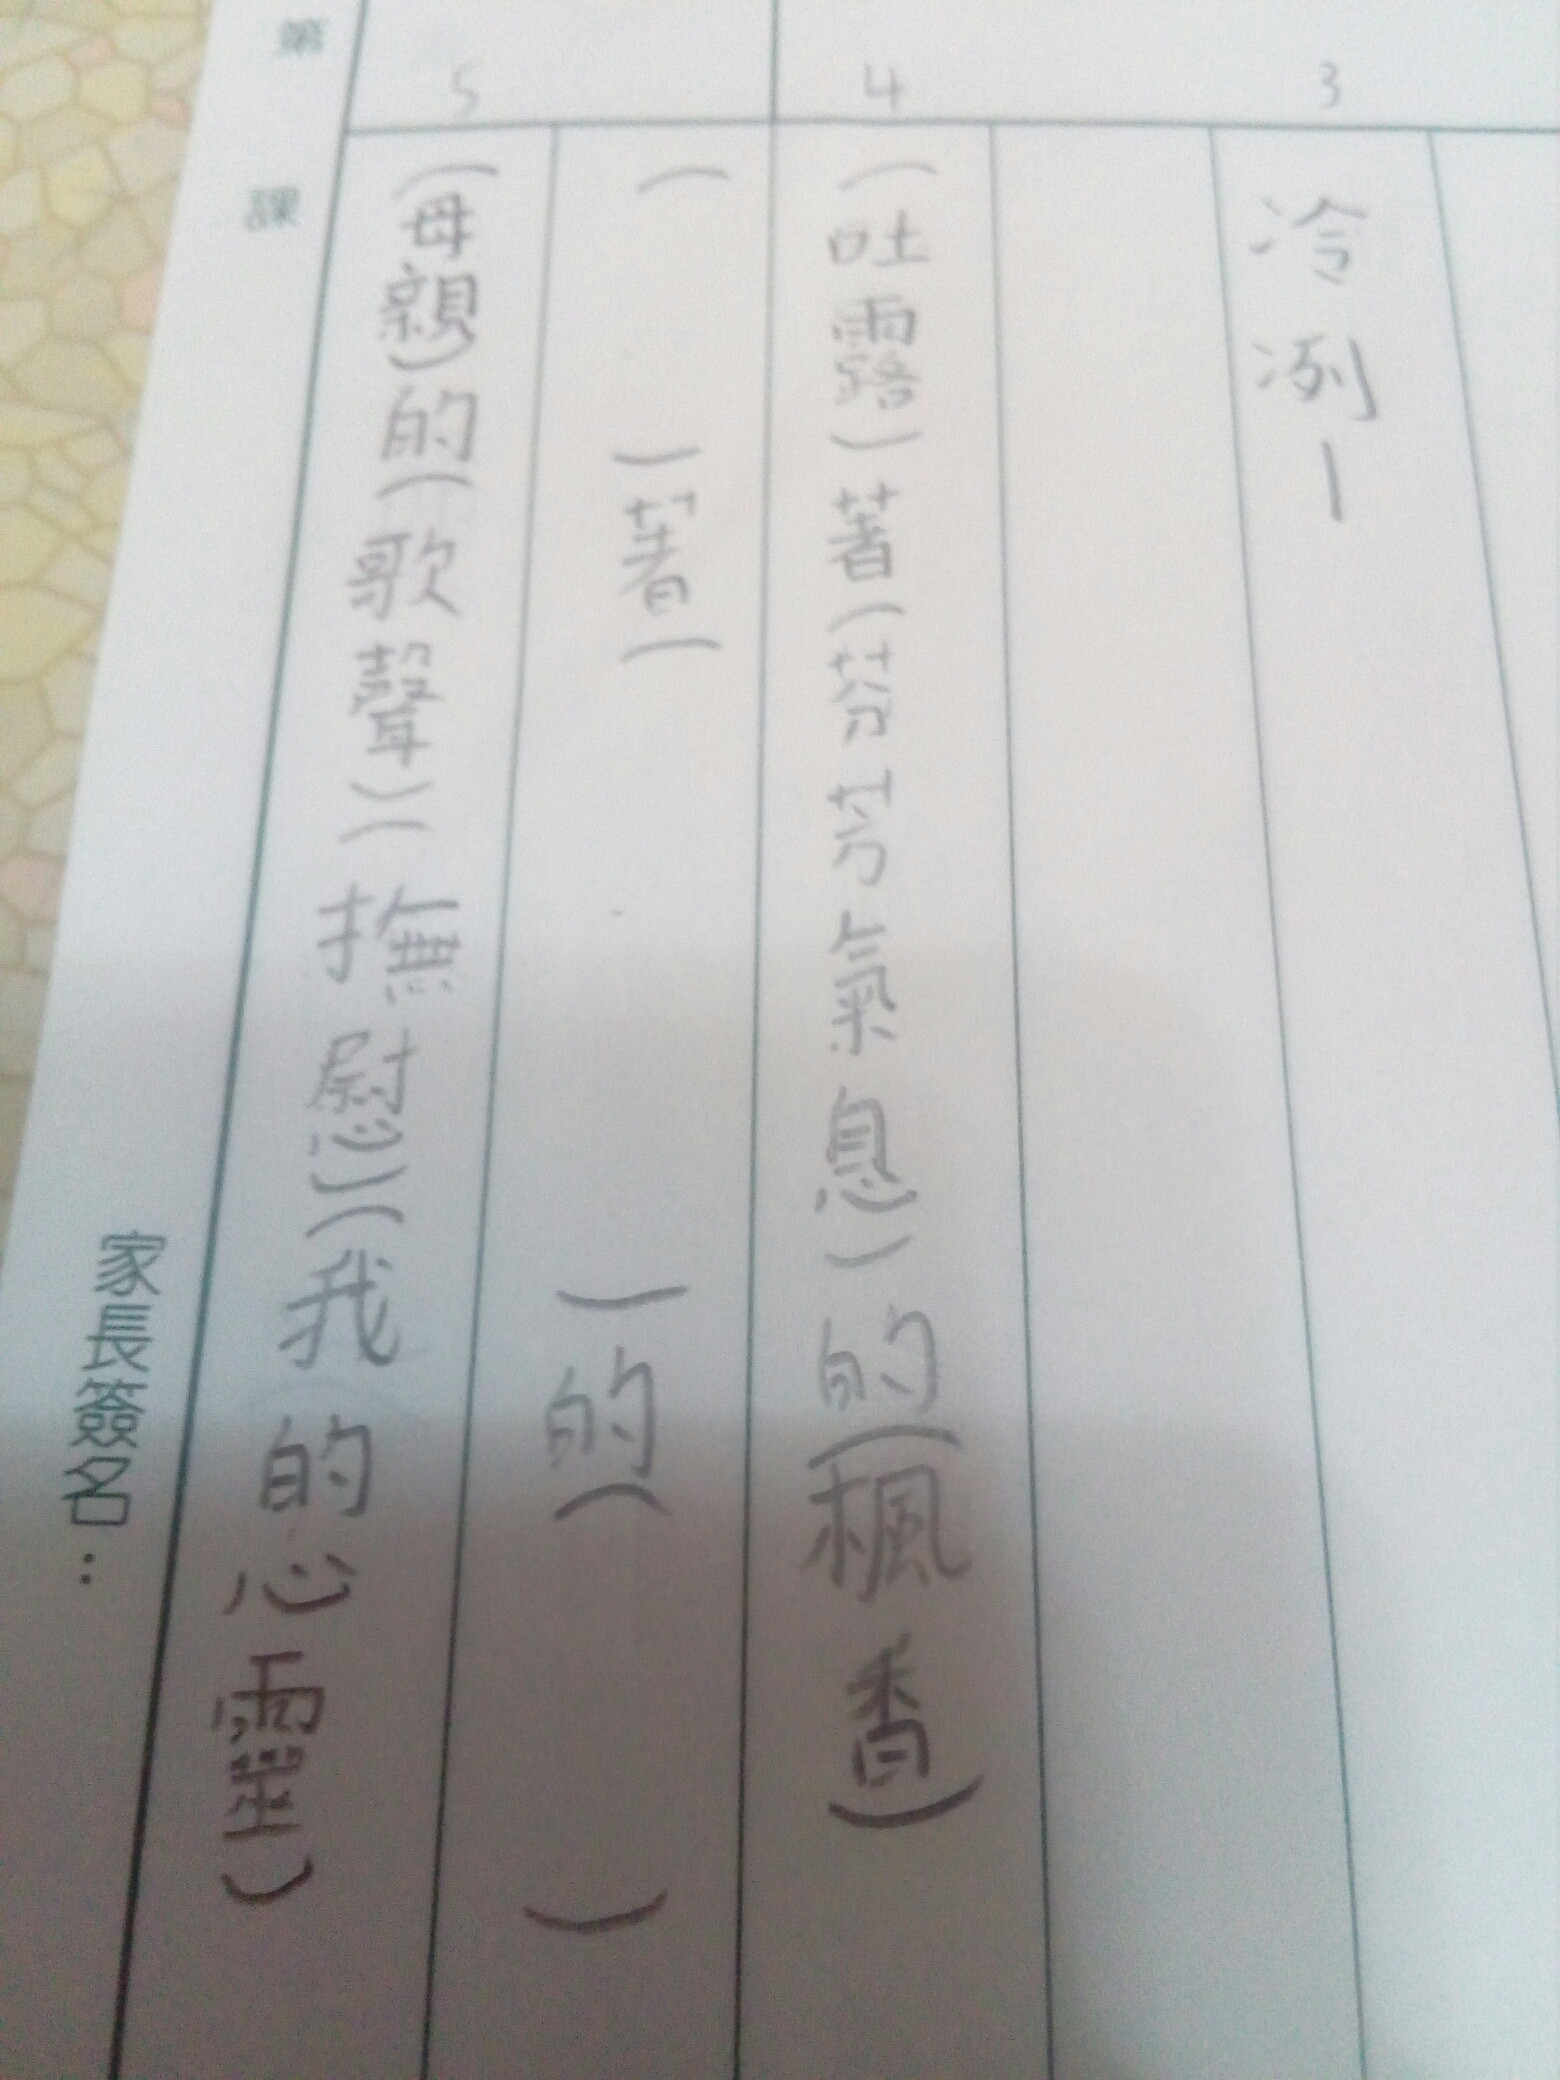 3
冷冽－
4
(吐露)著(芬芳氣息)的(楓香)
(　　)著(　　)的(　　)
5
(母親)的(歌聲)(撫慰)(我的心靈)
第　課
家長簽名：